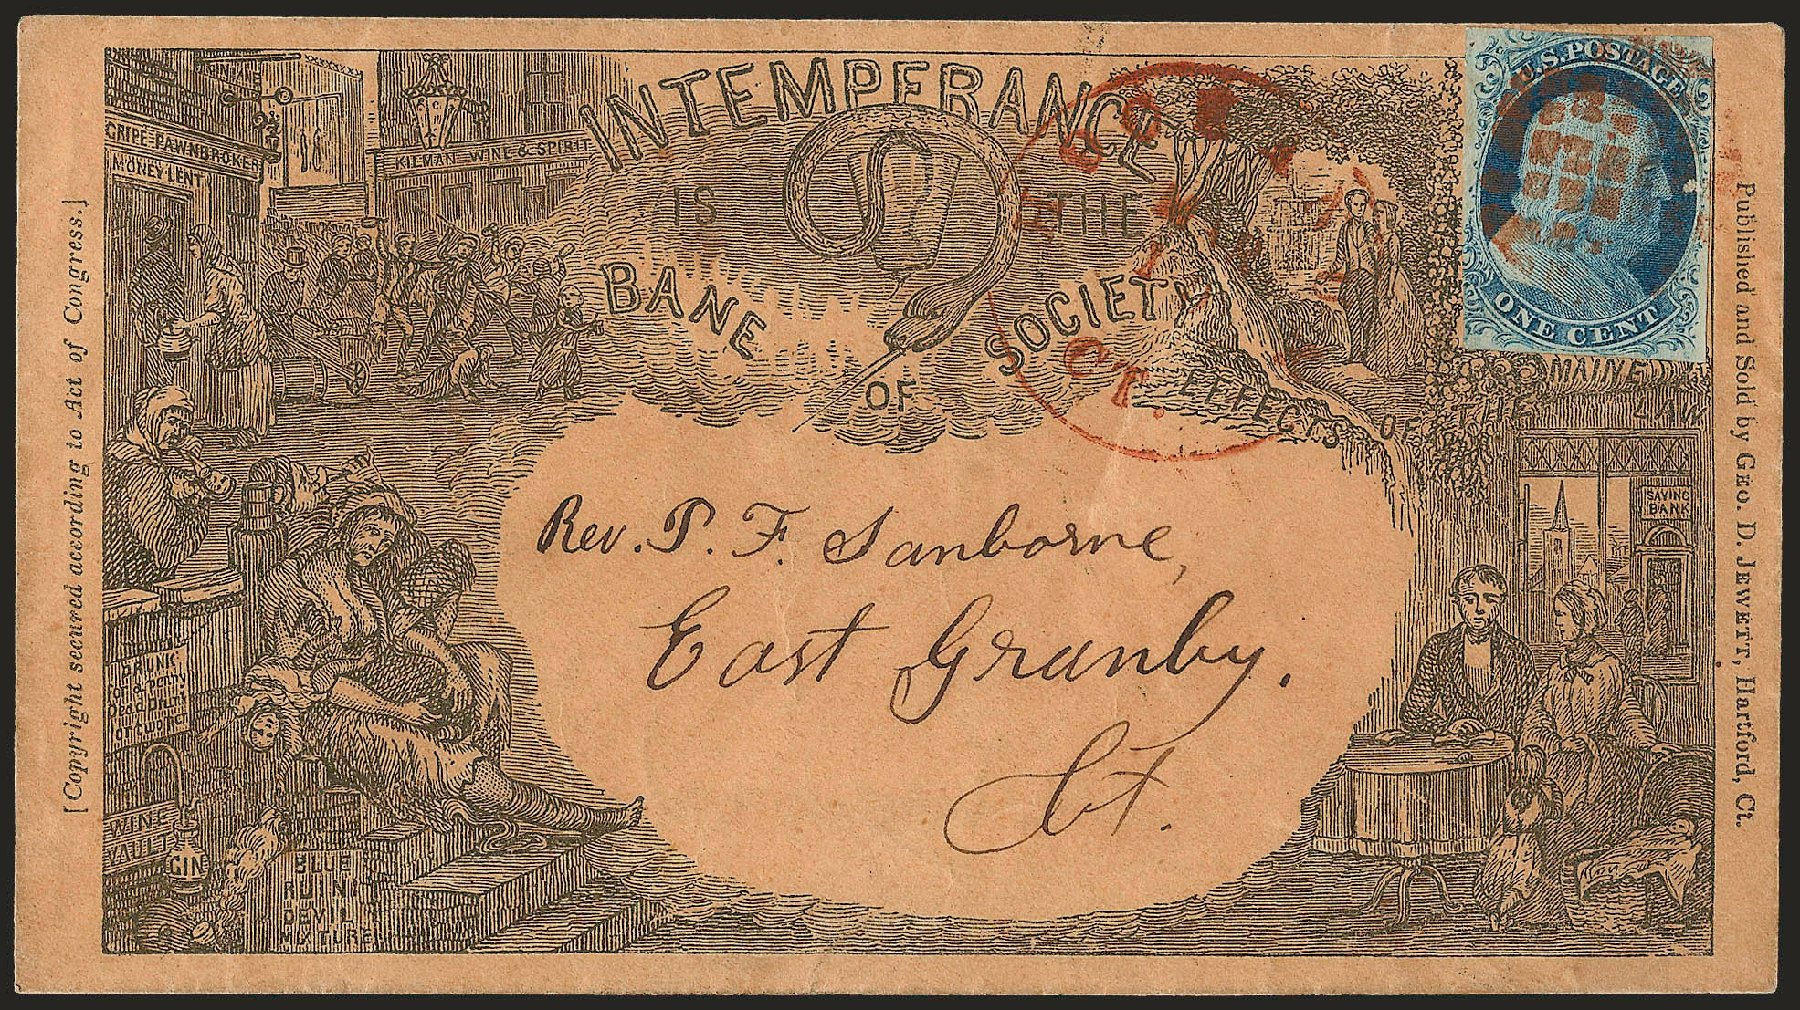 INTEMPERANCE
IS THE
BANE SOCIETY
OF
EFFECTS OF THE
MAINE
LAW
GRIPE-PAWNBROKER
MONEY LENT
KILMAN WINE & SPIRIT
U.S. POSTAGE
ONE CENT
CT.
SAVING
BANK
Rev. P. F. Sanborne,
East Granby.
Ct.
DRUNK
for a penny
Dead Drunk
for twopence
WINE
VAULT
GIN
BLUE
RUIN
DEVIL
MIXTURE
[Copyright secured according to Act of Congress.]
Published and Sold by GEO. D. JEWETT, Hartford, Ct.